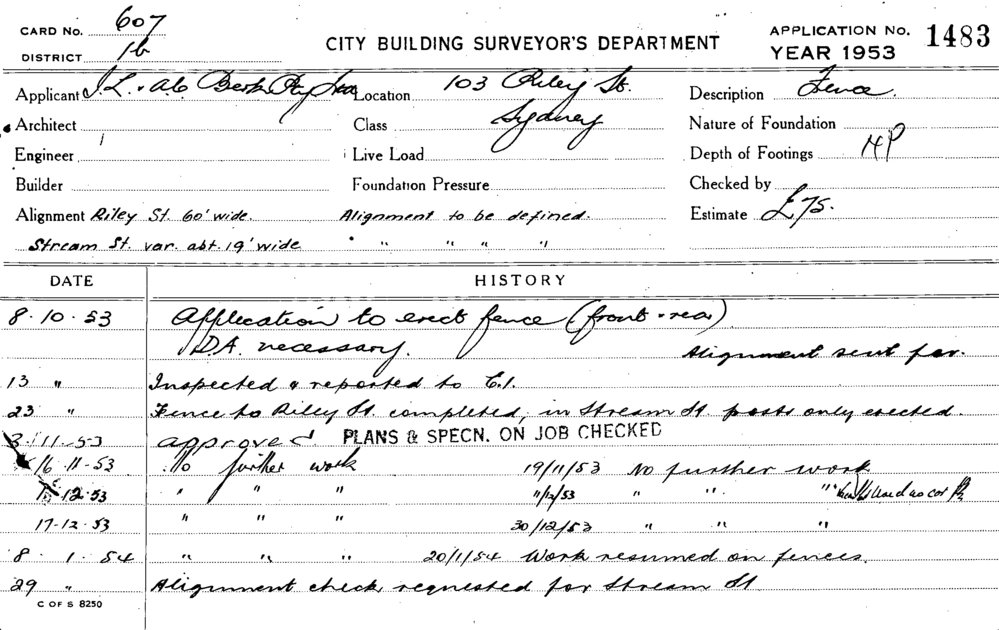 CARD No. 607
DISTRICT 16
CITY BUILDING SURVEYOR'S DEPARTMENT
APPLICATION No. 1483
YEAR 1953
Applicant J.L. & A.G.
Location 103 Riley St.
Sydney
Description Fence.
Architect
Class
Nature of Foundation
Engineer
Live Load
Depth of Footings
Builder
Foundation Pressure
Checked by
Alignment Riley St. 60' wide. Alignment to be defined.
Estimate £75.
Stream St. var. abt. 19' wide " " " "
DATE HISTORY
8.10.53 Application to erect fence (front & rear)
D.A. necessary. Alignment sent for.
13 " Inspected & reported to C.I.
23 " Fence to Riley St. completed, in Stream St. posts only erected.
3.11.53 approved PLANS & SPECN. ON JOB CHECKED
16.11.53 No further work 19/11/53 No further work
12.53 " " " 11/12/53 " " "
17.12.53 " " " 30/12/53 " " "
8.1.54 " " " 20/1/54 Work resumed on fences.
29 " Alignment check requested for Stream St.
C OF S 8250